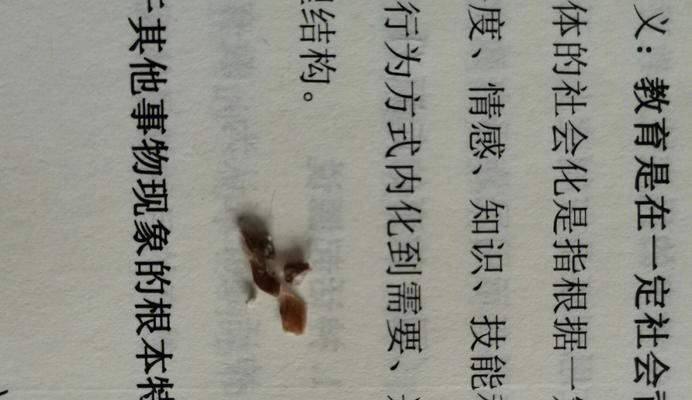 义：教育是在一定社会
体的社会化是指根据一
度、情感、知识、技能
行为方式内化到需要、
结构。
其他事物现象的根本特